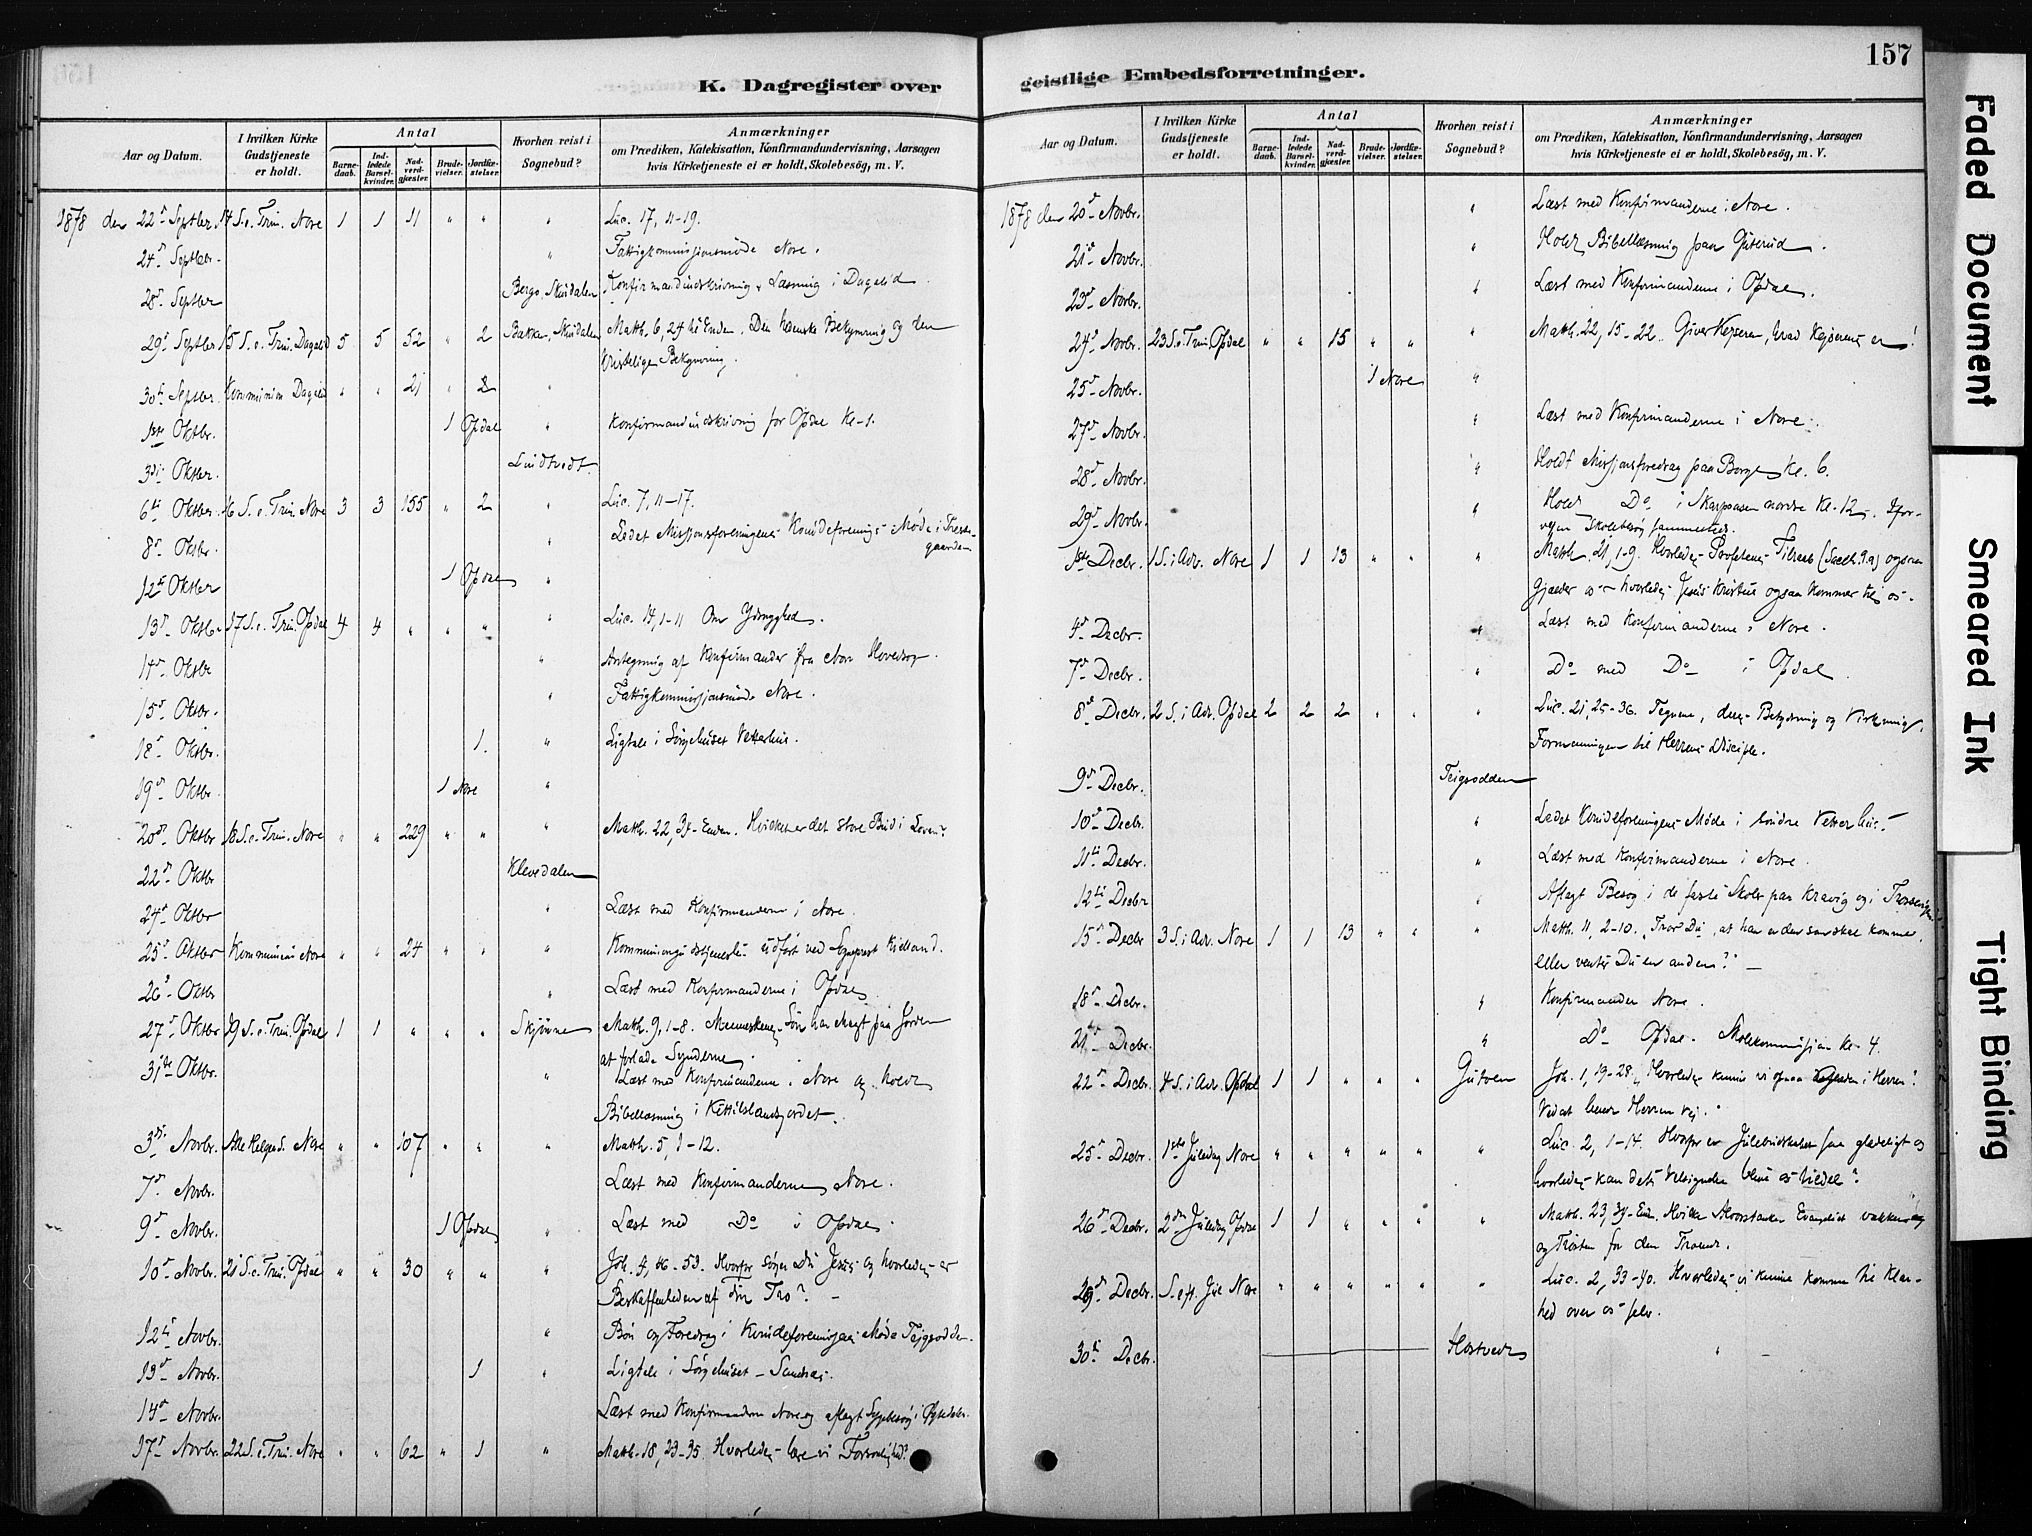 K. Dagregister over
Aar og Datum.
I hvilken Kirke Gudstjeneste er holdt.
Antal
Barne-daab.
Ind-ledede Barsel-kvinder.
Nad-verd-gjæster.
Brude-vielser.
Jordfæ-stelser.
Hvorhen reist i Sognebud?
Anmærkninger
om Prædiken, Katekisation, Konfirmandundervisning, Aarsagen
hvis Kirketjeneste ei er holdt, Skolebesög, m. V.
1878 den 22d Septbr. 14 S. e. Trin. Nore 1 1 11 " " " Luc. 17, 11-19.
24d Septbr. " Fattigkommissionsmöde Nore.
28d Septbr Bergo, Skurdalen Konfirmandindskrivning & Læsning i Dagalid
29d Septbr 15 S. e. Trin. Dagalid 5 5 52 " 2 Bakken, Skurdalen Matth. 6, 24 til Enden. Den hedenske Bekymring og den
kristelige Bekymring.
30te Septbr. Kommunion Dagalid " " 21 " 2 "
1ste Oktbr. 1 Opdal " Konfirmandindskrivning for Opdal Kl. 1.
3die Oktbr. Lindtvedt.
6te Oktbr. 16 S. e. Trin. Nore 3 3 155 " 2 " Luc. 7, 11-17.
8d Oktbr. " Ledet Missionsforeningens Kvindeforenings Möde i
gaarden
12te Oktbr 1 Opdal "
13d Oktbr 17 S. e. Trin. Opdal 4 4 " " " " Luc. 14, 1-11 Om Ydmyghed.
14d Oktbr " Antegning af Konfirmander fra Nore Hovedsogn.
15d Oktbr. " Fattigkommissionsmöde Nore.
18d Oktbr. 1. " Ligtale i Sörgehuset Vetterhus.
19d Oktbr 1 Nore "
20d Oktbr 18 S. e. Trin. Nore " " 229 " " " Matth. 22, 34-Enden. Hvilket er det store Bud i Loven?
22d Oktbr Klevedalen
24d Oktbr " Læst med Konfirmanderne i Nore.
25d Oktbr Kommunion Nore " " 24 " " " Kommuniongudstjeneste udfört ved Sognepræst Kielland.
26d Oktbr " Læst med Konfirmanderne i Opdal
27d Oktbr 19 S. e. Trin. Opdal 1 1 " " " Skjönne Matth. 9, 1-8. Menneskens Sön har Magt paa Jorden
at forlade Synderne.
31te Oktbr. " Læst med Konfirmanderne i Nore og holdt
Bibellæsning i Kittilslandsjordet.
3die Novbr. Alle Helgens S. Nore " " 107 " " " Matth. 5, 1-12.
7d Novbr. Læst med Konfirmanderne Nore.
9d Novbr. 1 Opdal " Læst med Do i Opdal.
10d Novbr. 21 S. e. Trin. Opdal " " 30 " " " Joh. 4, 46-53. Hvorfor söger Du Jesus og hvorledes er
Beskaffenheden af din Tro?
12te Novbr. " Bön og Foredrag i Kvindeforeningens Möde Teigsodden.
13d Novbr. 1 " Ligtale i Sörgehuset
14d Novbr. Læst med Konfirmanderne Nore og aflagt Sygebesög i
17d Novbr. 22 S. e. Trin. Nore " " 62 " 1 " Matth. 18, 23-35. Hvorledes lære vi Forsonlighed?
geistlige Embedsforretninger.
157
Aar og Datum.
I hvilken Kirke Gudstjeneste er holdt.
Antal
Barne-daab.
Ind-ledede Barsel-kvinder.
Nad-verd-gjæster.
Brude-vielser.
Jordfæ-stelser.
Hvorhen reist i Sognebud?
Anmærkninger
om Prædiken, Katekisation, Konfirmandundervisning, Aarsagen
hvis Kirketjeneste ei er holdt, Skolebesög, m. V.
1878 den 20d Novbr. " Læst med Konfirmanderne i Nore.
21d Novbr. " Holdt Bibellæsning paa Guterud.
23d Novbr. " Læst med Konfirmanderne i Opdal.
24d Novbr. 23 S. e. Trin. Opdal " " 15 " " " Matth. 22, 15-22. Giver Kejseren, hvad Kejserens er!
25d Novbr. 1 Nore "
27d Novbr. " Læst med Konfirmanderne i Nore.
28d Novbr. " Holdt Missionsforedrag paa Borge Kl. 6.
29d Novbr. " Holdt Do i nordre Kl. 12. Ifor-
vejen Skolebesög sammesteds.
1ste Decbr. 1 S. i Adv. Nore 1 1 13 " " " Matth. 21, 1-9. Hvorledes Profetens Tilraab (Sach. 9.9) ogsaa
gjælder os - hvorledes Jesus Kristus ogsaa kommer til os.
4d Decbr. " Læst med Konfirmanderne i Nore.
7d Decbr. " Do med Do i Opdal.
8de Decbr. 2 S. i Adv. Opdal 2 2 2 " " " Luc. 21, 25-36. Tegnene, deres Betydning og Virkning.
Formaningen til Herrens Disciple.
9d Decbr. Teigsodden
10d Decbr. " Ledet Kvindeforeningens Möde i söndre Vetterhus.
11te Decbr. " Læst med Konfirmanderne i Nore.
12te Decbr " Aflagt Besög i de faste Skoler paa Kravig og i
15d Decbr 3 S. i Adv. Nore 1 1 13 " " " Matth. 11, 2-10. "Tror Du, at han er den som skal komme,
eller venter Du en anden?"
18d Decbr. " Konfirmander Nore.
21de Decbr. " Do Opdal. Skolekommission Kl. 4.
22d Decbr. 4 S. i Adv. Opdal 1 1 " " " Gutven Joh. 1, 19-28. Hvorledes kunne vi ogsaa i Herren?
Ved at bane Herren Vej.
25d Decbr. 1ste Juledag Nore " " " " " " Luc. 2, 1-14. Hvorfor er Julebudskabet saa glædeligt og
hvorledes kan dets Velsignelse blive os tildel?
26d Decbr. 2den Juledag Opdal 1 1 " " " " Matth. 23, 34-End.
og Trösten for den Troende.
29d Decbr. S. eft. Jul Nore " " " " " " Luc. 2, 33-40. Hvorledes vi kunne komme til Klar-
hed over os selv.
30te Decbr. Hostvedt "
Faded Document
Smeared Ink
Tight Binding